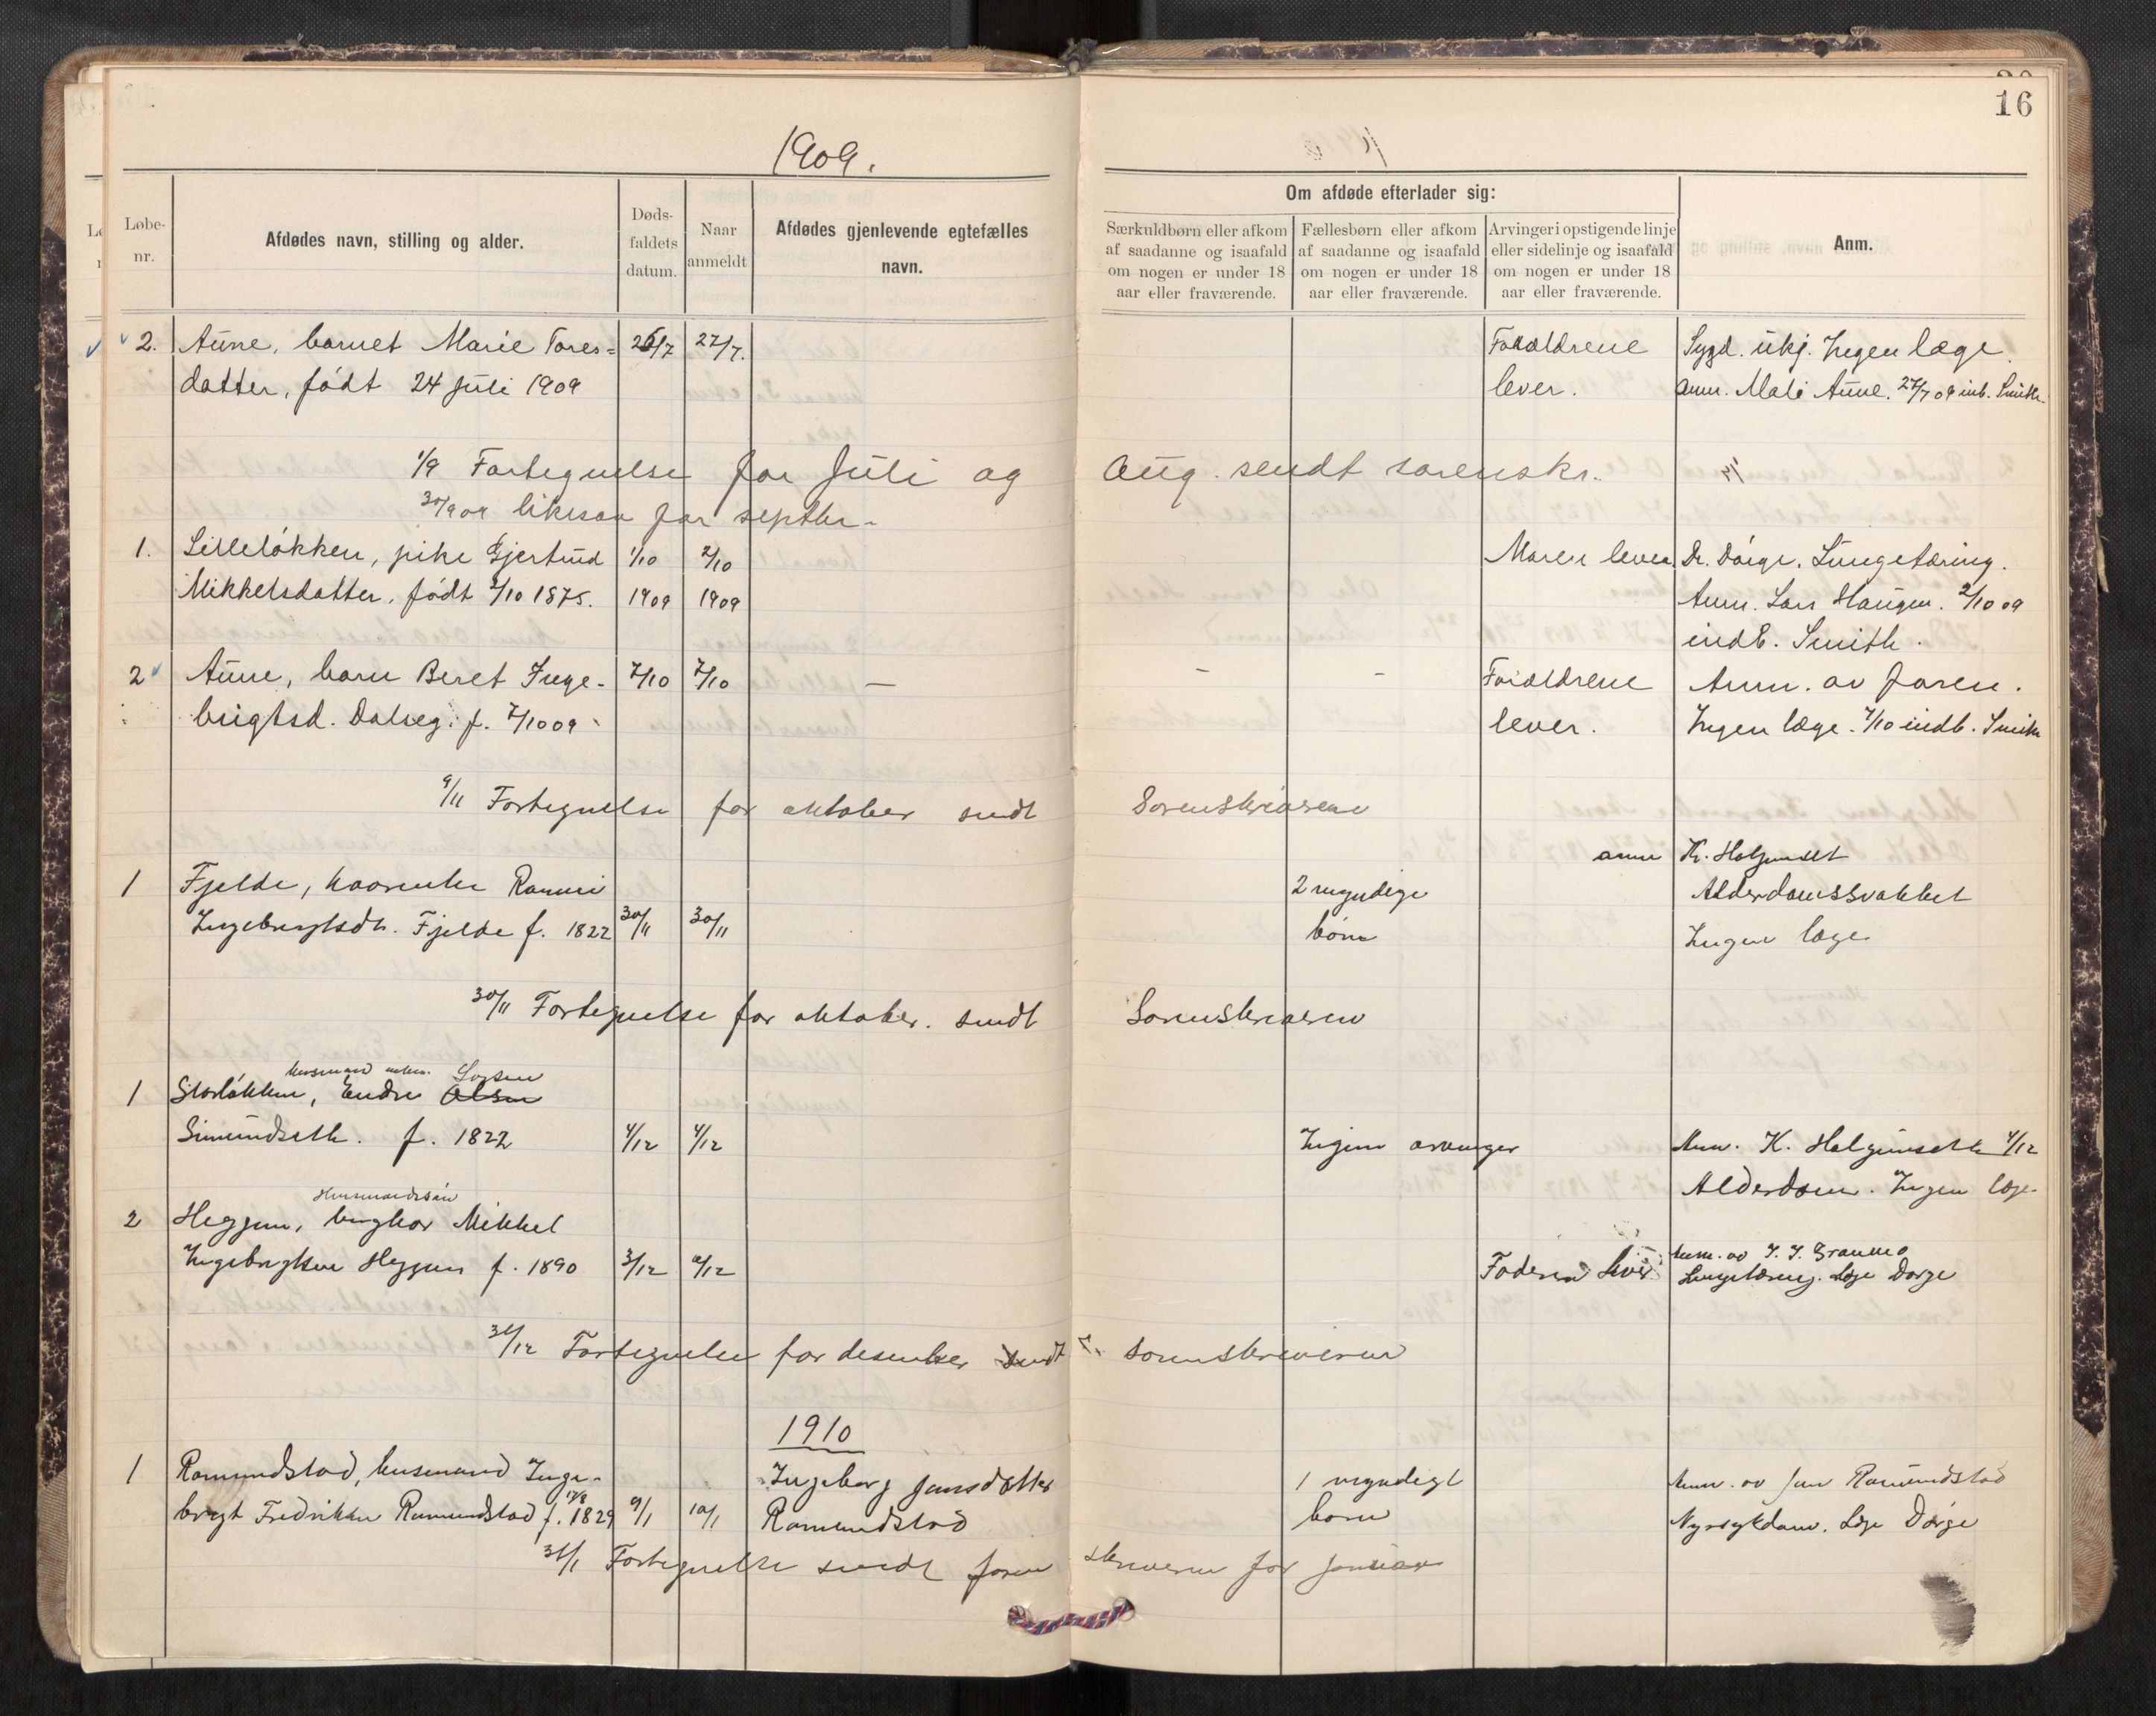 16
1909.
Om afdøde efterlader sig:
Løbe-nr.
Afdødes navn, stilling og alder.
Døds-faldets datum.
Naar anmeldt
Afdødes gjenlevende egtefælles navn.
Særkuldbørn eller afkom af saadanne og isaafald om nogen er under 18 aar eller fraværende.
Fællesbørn eller afkom af saadanne og isaafald om nogen er under 18 aar eller fraværende.
Arvinger i opstigende linje eller sidelinje og isaafald om nogen er under 18 aar eller fraværende.
Anm.
2. Aune, barnet Marie Tores- 26/7 27/7. Forældrene Sygd. ukj. Ingen læge.
datter, født 24 Juli 1909 lever. Anm. Aune. 27/7 09 inb. Smith.
1/9 Fortegnelse for Juli og Aug. sendt sorenskr.
30/9 09 likesaa for septbr.
1. Lilleløkken, pike Gjertrud 1/10 2/10 Moren lever. Dr. Dørge. Lungetæring.
Mikkelsdatter, født 2/10 1875. 1909 1909 Anm. Lars Haugen. 2/10 09
indb. Smith.
2 Aune, barn Beret Inge- 7/10 7/10 — - - Forældrene Anm. av faren.
brigtsd. Dalseg. f. 7/10 09 lever. Ingen læge. 7/10 indb. Smith
9/11 Fortegnelse for oktober sendt Sorenskriveren
1 Fjelde, kaarenke 2 myndige anm K. Halgunset
Ingebrigtsdtr. Fjelde f. 1822 30/11 30/11 børn Alderdomssvakket
Ingen læge
30/11 Fortegnelse for oktober. sendt Sorenskriveren
husmand Larsen
1 Storløkken, Endre Olsen
Simundseth. f. 1822 4/12 4/12 Ingen arvinger Anm. K. Halgunseth 4/12
Alderdom. Ingen læge
Husmandssøn
2 Heggem, ungkar Mikkel
Ingebrigtsen Heggem f. 1890 3/12 Faderen lever Anm. av I. I. Granmo
Lungetæring. Læge Dørge
31/12 Fortegnelse for desember sendt sorenskriveren
1910
1 Ramundstad, husmand Inge- Ingeborg Jonsdatter 1 myndigt Anm. av Jon Ramundstad
brigt Fredriksen Ramundstad f. 1829 9/1 10/1 Ramundstad barn Nyresykdom. Læge Dørge
31/1 Fortegnelse sendt soren skriveren for januar